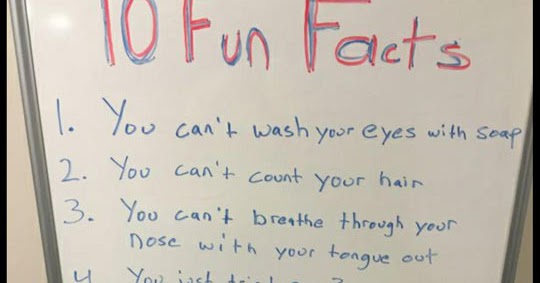 10 Fun Facts
1. You can't wash your eyes with soap
2. You can't count your hair
3. You can't breathe through your
nose with your tongue out
4 You just